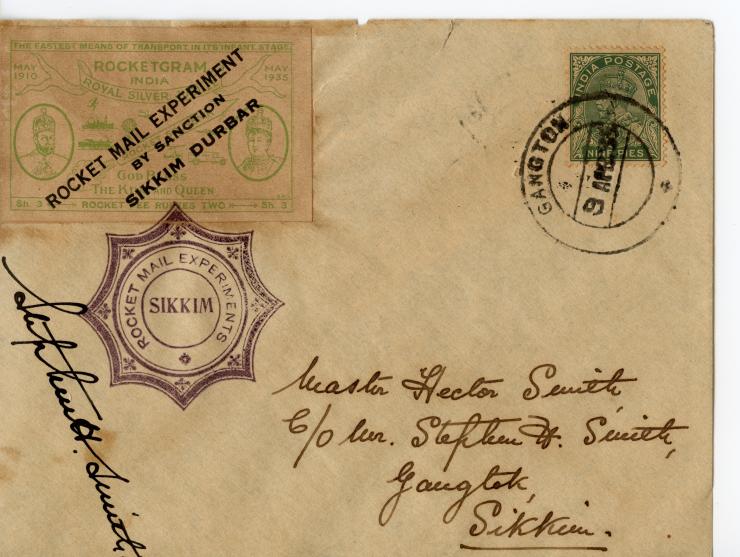 THE FASTEST MEANS OF TRANSPORT IN ITS INFANT STAGE
MAY 1910
ROCKETGRAM
MAY 1935
INDIA
ROYAL SILVER
ROCKET MAIL EXPERIMENT
BY SANCTION
SIKKIM DURBAR
GOD
THE KING AND QUEEN
Sh. 3
ROCKET FEE RUPEES TWO
Sh. 3
INDIA POSTAGE
NINE PIES
GANGTOK
9 APR
ROCKET MAIL EXPERIMENTS
SIKKIM
Stephen H. Smith
Master Hector Smith
C/o Mr. Stephen H. Smith,
Gangtok,
Sikkim.